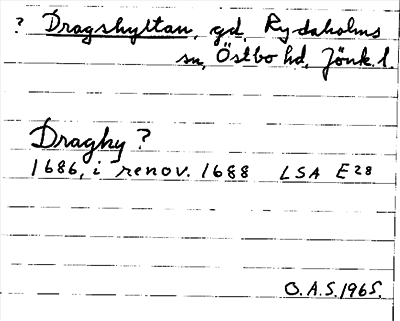 ? Dragshyltan, gd, Rydaholms
sn, Östbo hd, Jönk. l.
Draghy ?
1686, i renov. 1688 LSA E28
O.A.S. 1965.